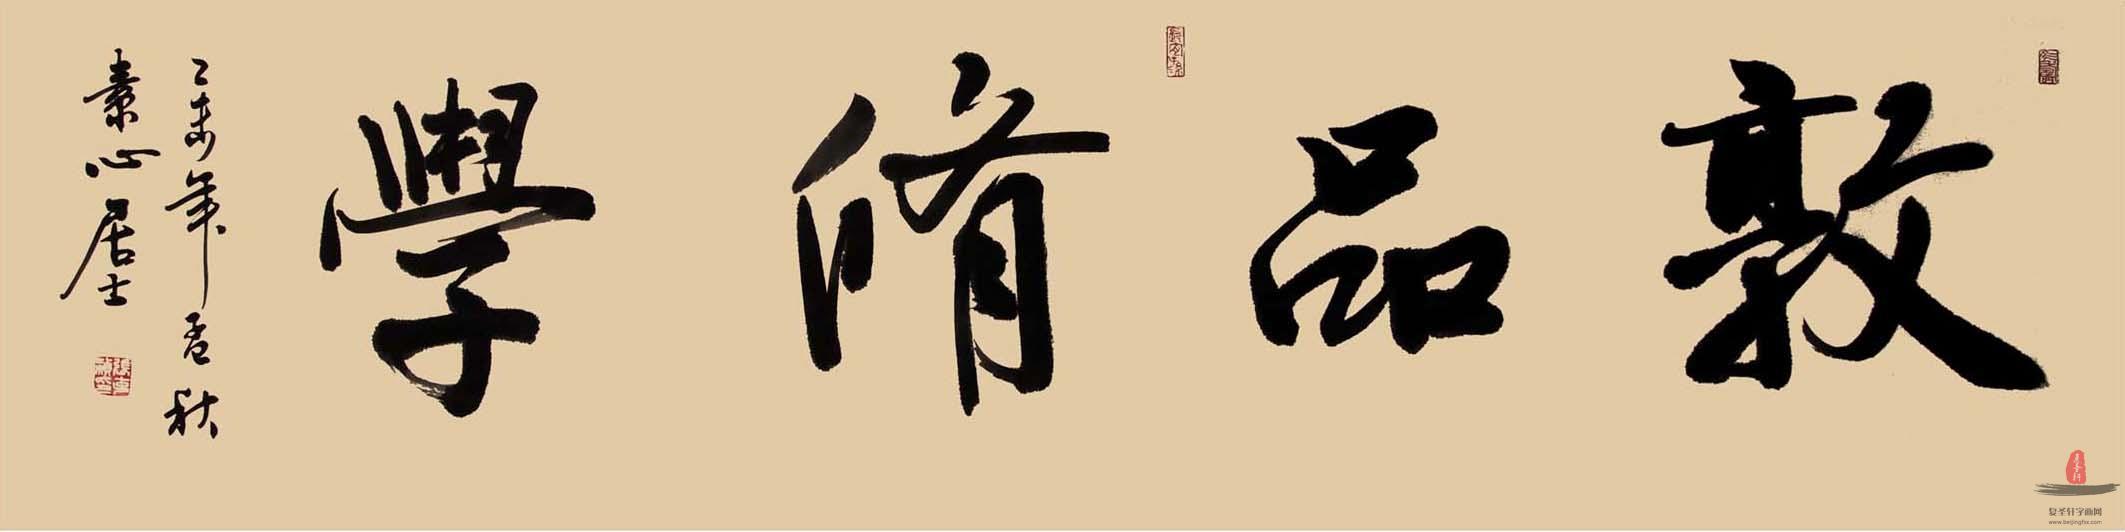 敦品脩學
乙未年孟秋
素心居士
复圣轩
复圣轩字画网
www.beijingfsx.com